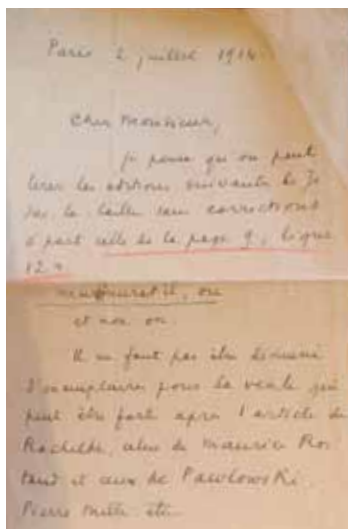 Paris 2 juillet 1914.
Cher Monsieur,
Je pense qu'on peut
tirer les éditions suivantes de Je
sur la taille sans corrections
à part celle de la page 9, ligne
12 :
murmurait-il, ou
et non on.
Il ne faut pas être démuni
d'exemplaires pour la vente qui
peut être forte après l'article de
Rachilde, celui de Maurice Ros
tand et ceux de Pawlowski,
Pierre Mille etc.